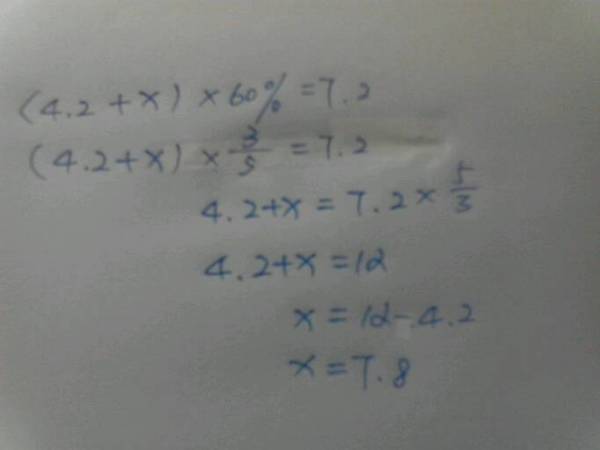 (4.2+x)×60%=7.2
(4.2+x)×3/5=7.2
4.2+x=7.2×5/3
4.2+x=12
x=12-4.2
x=7.8